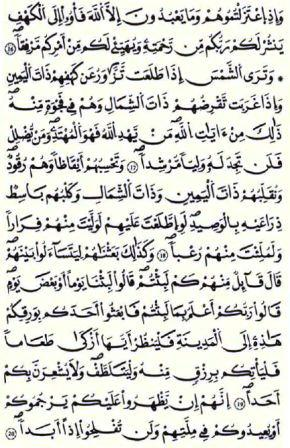 وَإِذِ اعْتَزَلْتُمُوهُمْ وَمَا يَعْبُدُونَ إِلَّا اللَّهَ فَأْوُۥٓا إِلَى الْكَهْفِ
يَنشُرْ لَكُمْ رَبُّكُم مِّن رَّحْمَتِهِۦ وَيُهَيِّئْ لَكُم مِّنْ أَمْرِكُم مَّرْفِقاً ١٦
۞ وَتَرَى الشَّمْسَ إِذَا طَلَعَت تَّزَّاوَرُ عَن كَهْفِهِمْ ذَاتَ الْيَمِينِ
وَإِذَا غَرَبَت تَّقْرِضُهُمْ ذَاتَ الشِّمَالِ وَهُمْ فِي فَجْوَةٍ مِّنْهُ
ذَٰلِكَ مِنْ ءَايَٰتِ اللَّهِ مَنْ يَهْدِ اللَّهُ فَهُوَ الْمُهْتَدِ وَمَنْ يُضْلِلْ
فَلَن تَجِدَ لَهُۥ وَلِيّاً مُّرْشِداً ١٧ وَتَحْسِبُهُمْ أَيْقَاظاً وَهُمْ رُقُودٌ
وَنُقَلِّبُهُمْ ذَاتَ الْيَمِينِ وَذَاتَ الشِّمَالِ وَكَلْبُهُم بَاسِطٌ
ذِرَاعَيْهِ بِالْوَصِيدِ لَوِ اطَّلَعْتَ عَلَيْهِمْ لَوَلَّيْتَ مِنْهُمْ فِرَاراً
وَلَمُلِّئْتَ مِنْهُمْ رُعْباً ١٨ وَكَذَٰلِكَ بَعَثْنَٰهُمْ لِيَتَسَآءَلُوا بَيْنَهُمْ
قَالَ قَآئِلٌ مِّنْهُمْ كَمْ لَبِثْتُمْ قَالُوا لَبِثْنَا يَوْماً أَوْ بَعْضَ يَوْمٍ
قَالُوا رَبُّكُمْ أَعْلَمُ بِمَا لَبِثْتُمْ فَابْعَثُوا أَحَدَكُم بِوَرِقِكُمْ
هَٰذِهِۦٓ إِلَى الْمَدِينَةِ فَلْيَنظُرْ أَيُّهَآ أَزْكَىٰ طَعَاماً
فَلْيَأْتِكُم بِرِزْقٍ مِّنْهُ وَلْيَتَلَطَّفْ وَلَا يُشْعِرَنَّ بِكُمْ
أَحَداً ١٩ إِنَّهُمْ إِنْ يَظْهَرُوا عَلَيْكُمْ يَرْجُمُوكُمْ
أَوْ يُعِيدُوكُمْ فِي مِلَّتِهِمْ وَلَن تُفْلِحُوٓا إِذاً أَبَداً ٢٠